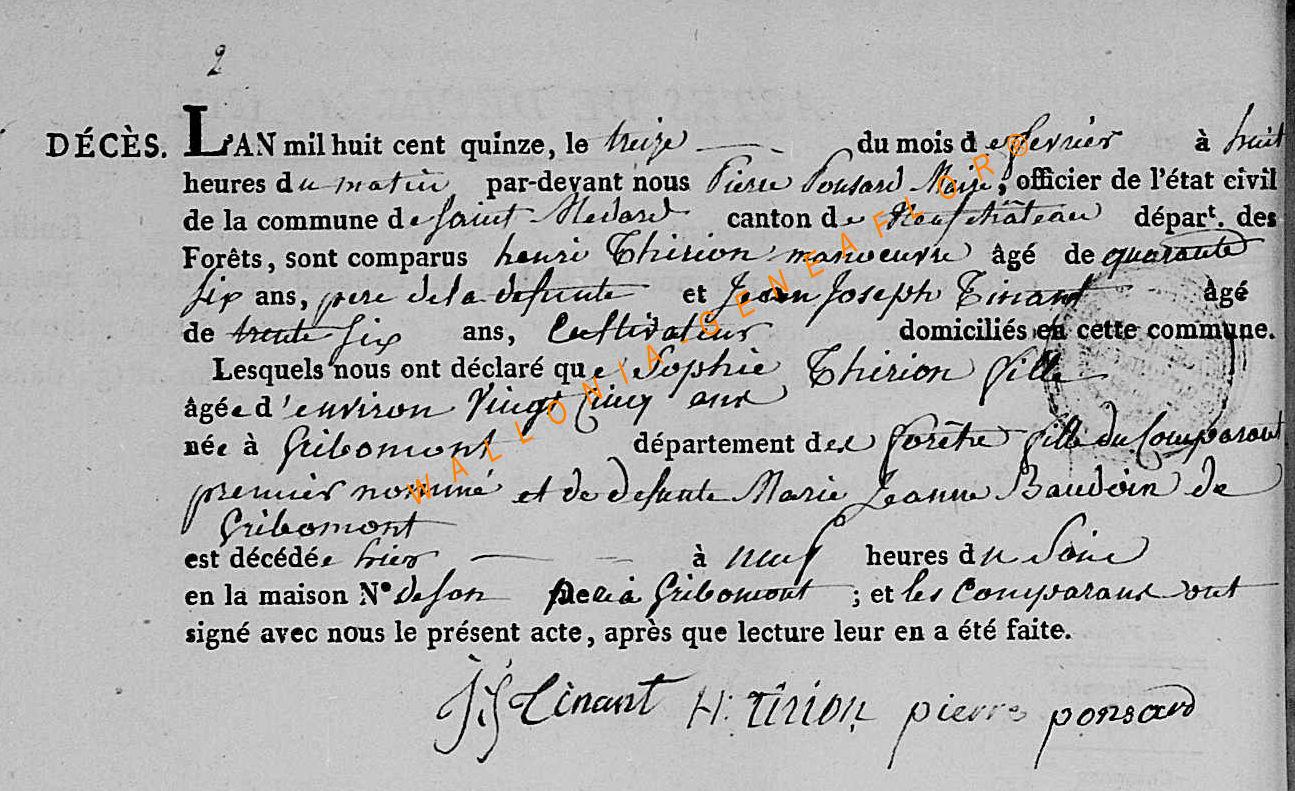 2
DÉCÈS. L'AN mil huit cent quinze, le treize du mois de fevrier à huit
heures du matin par-devant nous Pierre Ponsard Maire, officier de l'état civil
de la commune de Saint Medard canton de Neufchâteau départ. des
Forêts, sont comparus henri Thirion manoeuvre âgé de quarante
six ans, pere de la defunte et Jean Joseph Tinant âgé
de trente six ans, Cultivateur domiciliés en cette commune.
Lesquels nous ont déclaré que Sophie Thirion fille
âgée d'environ vingt cinq ans
née à Gribomont département des forêts fille du Comparant
premier nommé et de defunte Marie Jeanne Baudoin de
Gribomont
est décédée hier à neuf heures du soir
en la maison N° de son pere à Gribomont ; et les comparans ont
signé avec nous le présent acte, après que lecture leur en a été faite.
JJ Tinant H. TIRION pierre ponsard
WALLONIA-GENEAFLOR®